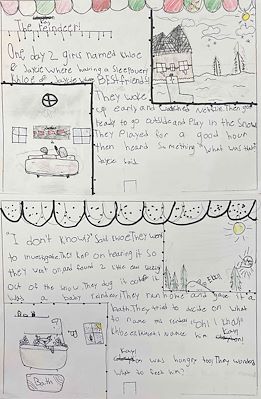 The reindeer!
One day 2 girls named Khloe
& Jaycie where having a Sleepover!
Khloe & Jaycie were BEST friends!
They woke
up early and watched Netflix. Then got
ready to go outside and Play in the Snow
They Played for a good hour
then heard something "What was that"
Jaycie said.
"I don't know?" Said Khloe They went
to investigate. They kept on hearing it so
they went on and found 2 little ears sticking
out of the snow. They dog it out it
was a baby reindeer! They run home and gave it a
bath. They tried to decide on what
to name this reindeer "Oh! I know"
Khloe exclaimed! Name him
was hungry too! They wondered
what to feed him?
Bath